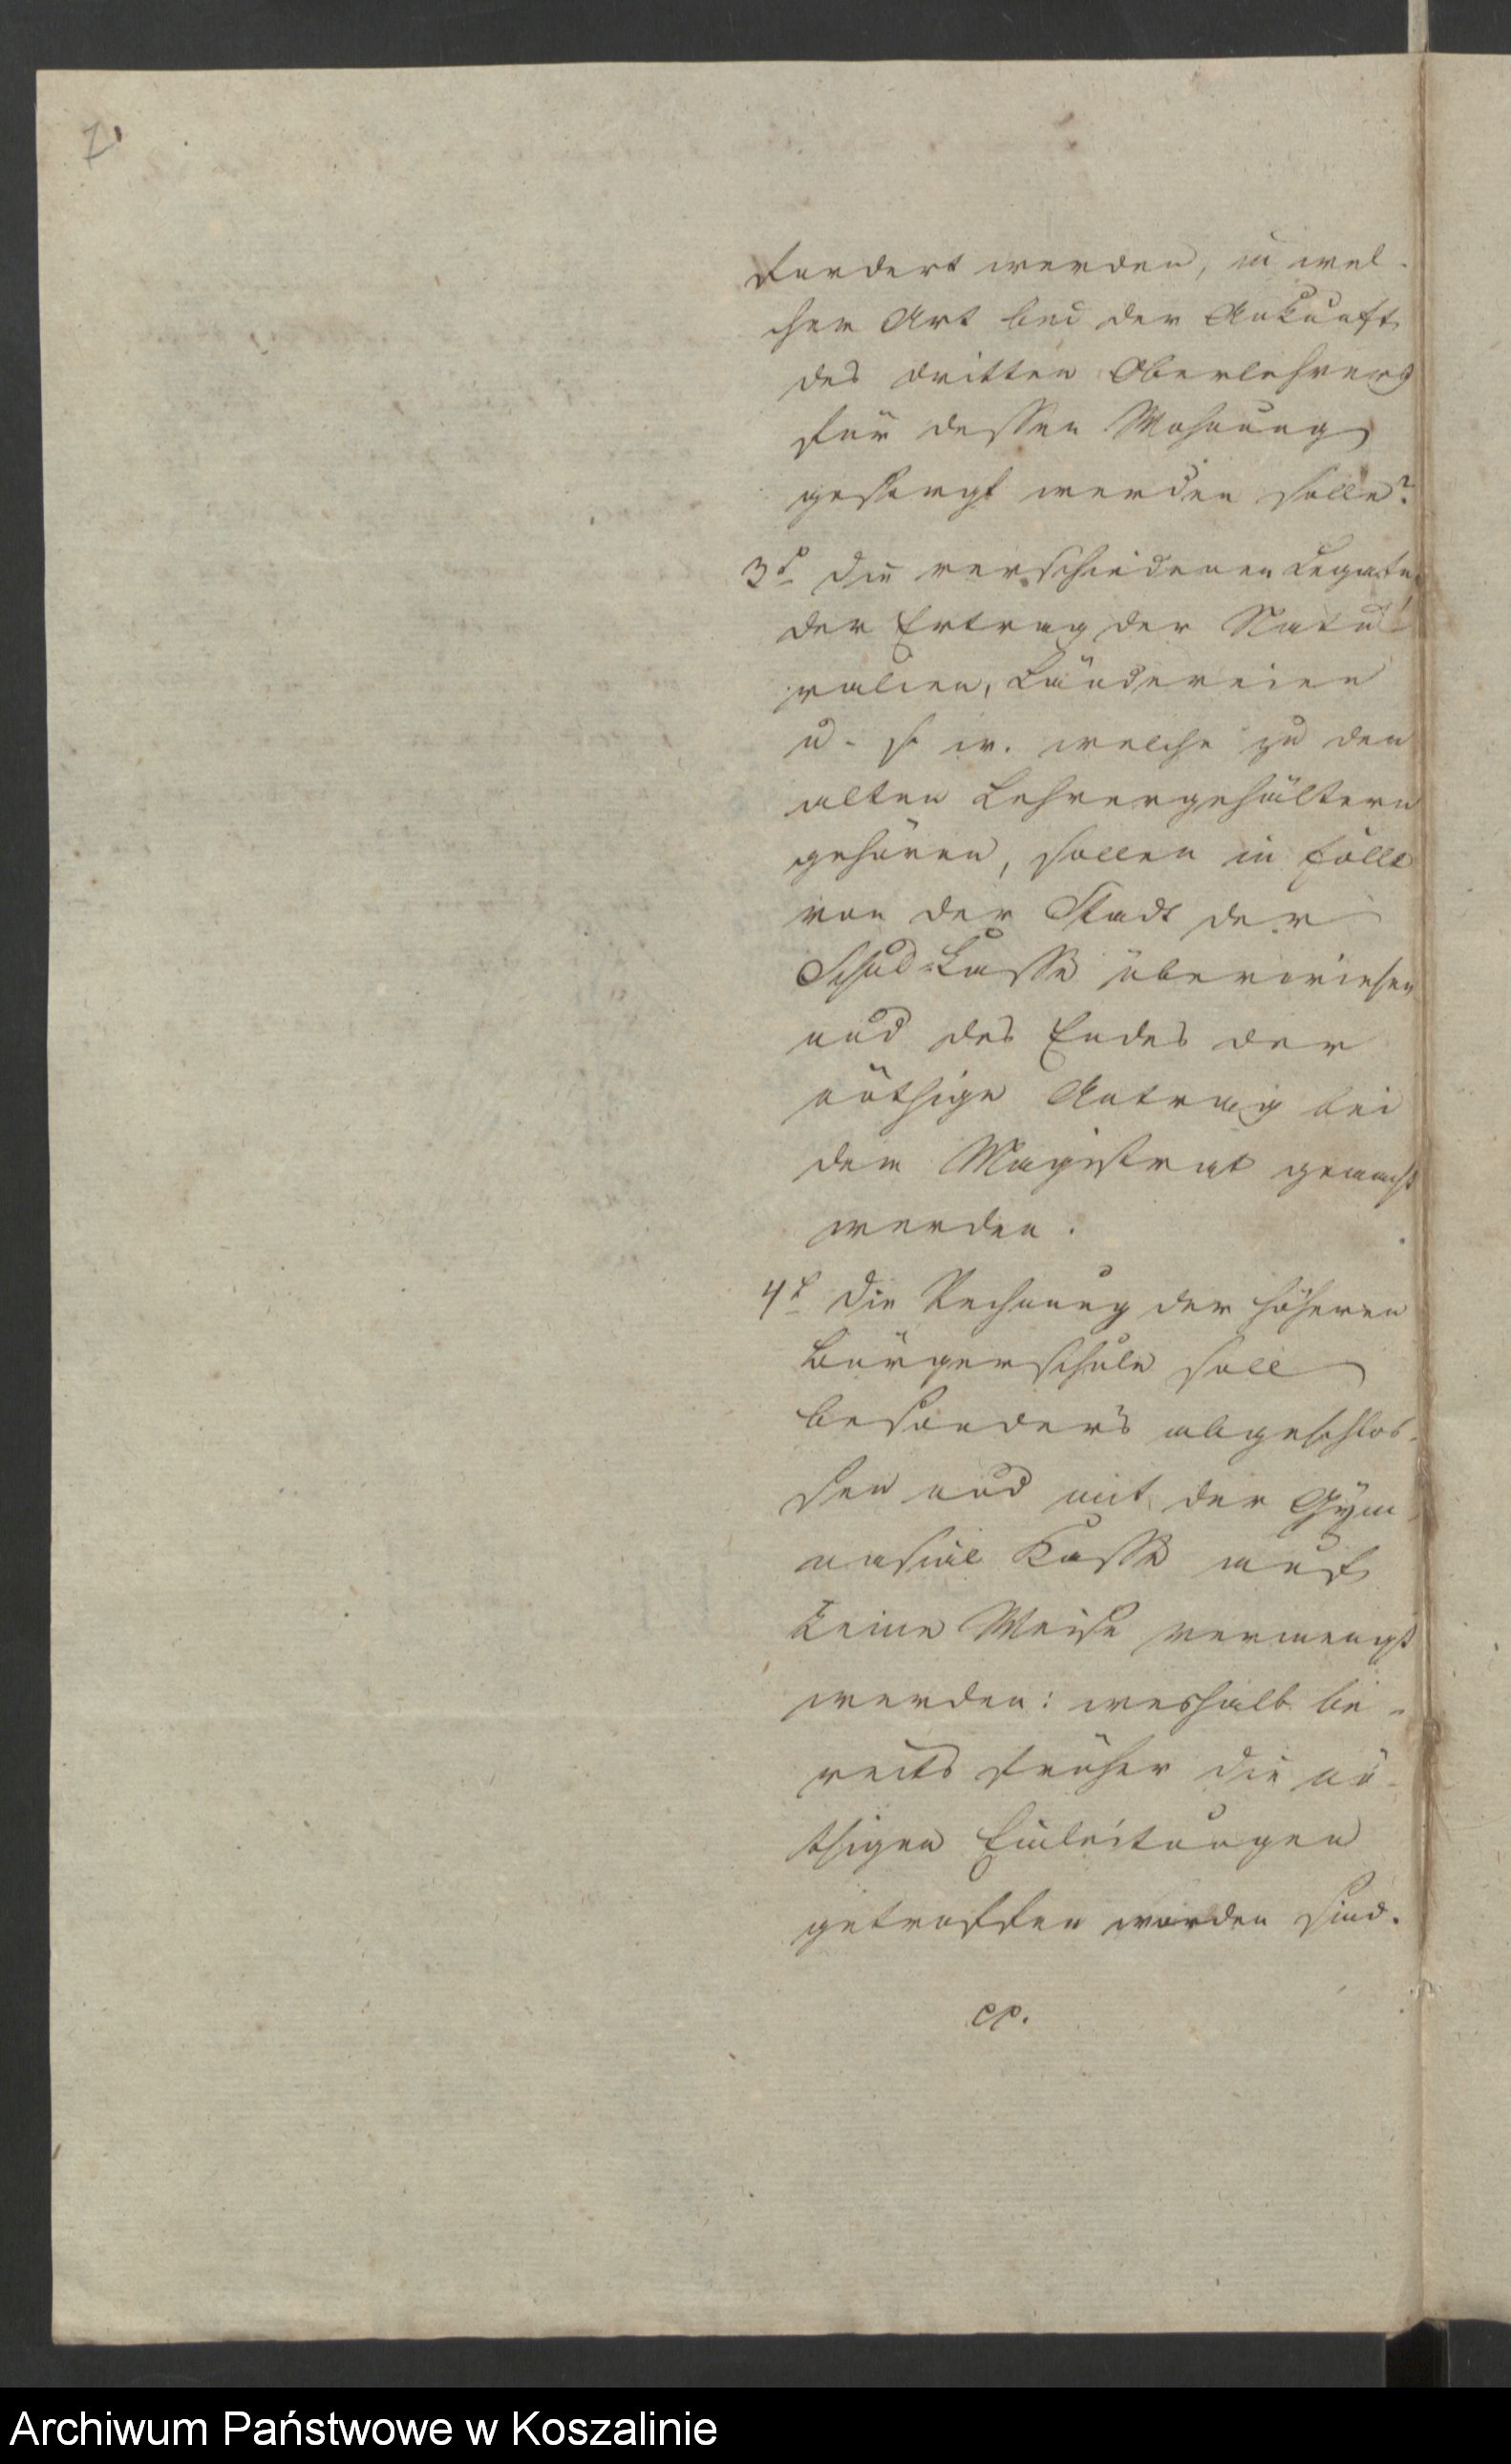 fordert werden, in wel-
cher Art bei der Ankunft
des dritten Oberlehrers
für dessen Wohnung
gesorgt werden solle?
3t. die verschiedenen Legate,
der Ertrag der Natu-
ralien, Ländereien
u. s. w. welche zu den
alten Lehrergehältern
gehören, sollen in
von der Stadt der
Schul-Casse überwiesen
und des Endes der
nöthige Antrag bei
dem Magistrat gemacht
werden.
4t. die Rechnung der höheren
Bürgerschule soll
besonders abgeschlos-
sen und mit der Gym-
nasial Kasse auf
keine Weise vermengt
werden: weshalb be-
reits früher die nö-
thigen Einleitungen
getroffen worden sind.
pp.
Archiwum Państwowe w Koszalinie